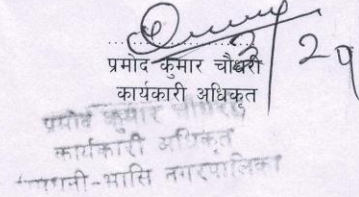 प्रमोद कुमार चौधरी
कार्यकारी अधिकृत
प्रमोद कुमार चौधरी
कार्यकारी अधिकृत
भासि नगरपालिका